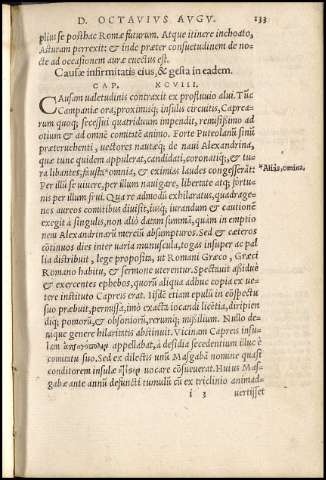 D. OCTAVIVS AVGV. 133
plius se posthac Romæ futurum. Atque itinere inchoato,
Asturam perrexit: & inde præter consuetudinem de no-
cte ad occasionem auræ euectus est.
Causæ infirmitatis eius, & gesta in eadem.
CAP. XCVIII.
CAusam ualetudinis contraxit ex profluuio alui. Tũc
Campaniæ ora, proximisq; insulis circuitis, Caprea-
rum quoq; secessui quatriduum impendit, remississimo ad
otium & ad omnẽ comitatẽ animo. Forte Puteolanũ sinũ
præteruehenti, uectores nautæq; de naui Alexandrina,
quæ tunc quidem appulerat, candidati, coronatiq;, & tu
ra libantes, fausta *omnia, & eximias laudes congesserãt:
*Aliâs, omina.
Per illũ se uiuere, per illum nauigare, libertate atq; fortu-
nis per illum frui. Qua re admodũ exhilaratus, quadrage-
nos aureos comitibus diuisit, iusq; iurandum & cautionẽ
exegit à singulis, non aliò datam summã, quàm in emptio
nem Alexandrinarũ merciũ absumpturos. Sed & cæteros
cõtinuos dies inter uaria munuscula, togas insuper ac pal
lia distribuit, lege proposita, ut Romani Græco, Græci
Romano habitu, & sermone uterentur. Spectauit assiduè
& exercentes ephebos, quorũ aliqua adhuc copia ex ue-
tere instituto Capreis erat. Iisdẽ etiam epulũ in cõspectu
suo præbuit, permissa, imò exacta iocandi licẽtia, diripien
diq; pomorũ, & obsoniorũ, rerumq; missilium. Nullo de-
nique genere hilaritatis abstinuit. Vicinam Capreis insu-
lam appellabat, à desidia secedentium illuc è
comitatu suo. Sed ex dilectis unũ Masgabã nomine quasi
conditorem insulæ uocare cõsueuerat. Huius Mas-
gabæ ante annũ defuncti tumulũ cũ ex triclinio animad-
i 3 uertisset